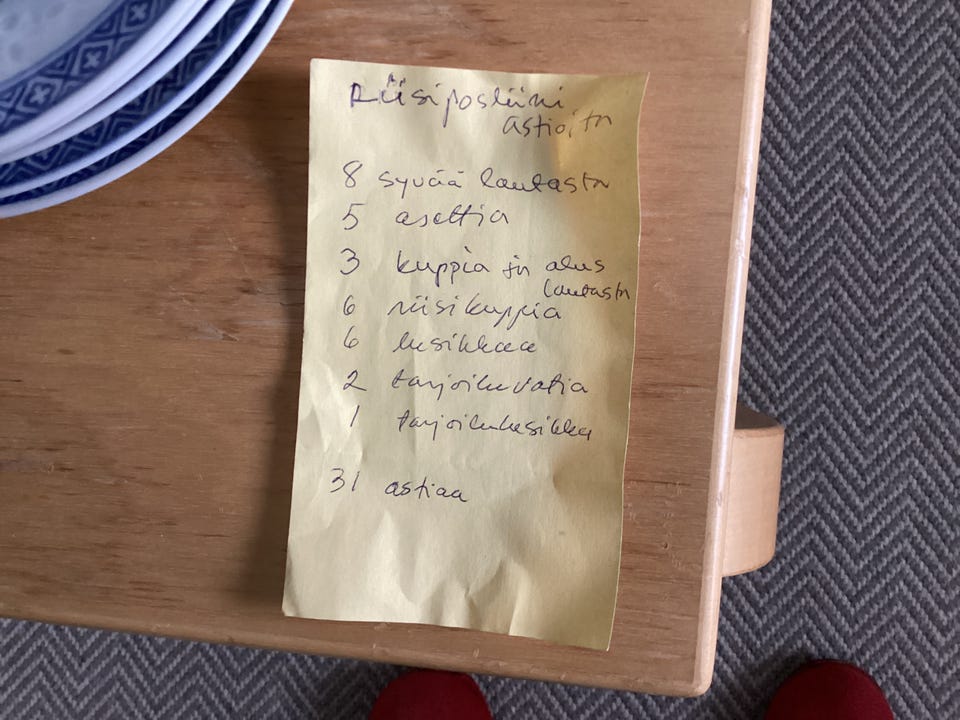 Riisiposliini
astioita
8 syvää lautasta
5 asettia
3 kuppia ja alus
lautasta
6 riisikuppia
6 lusikkaa
2 tarjoiluvatia
1 tarjoilulusikka
31 astiaa